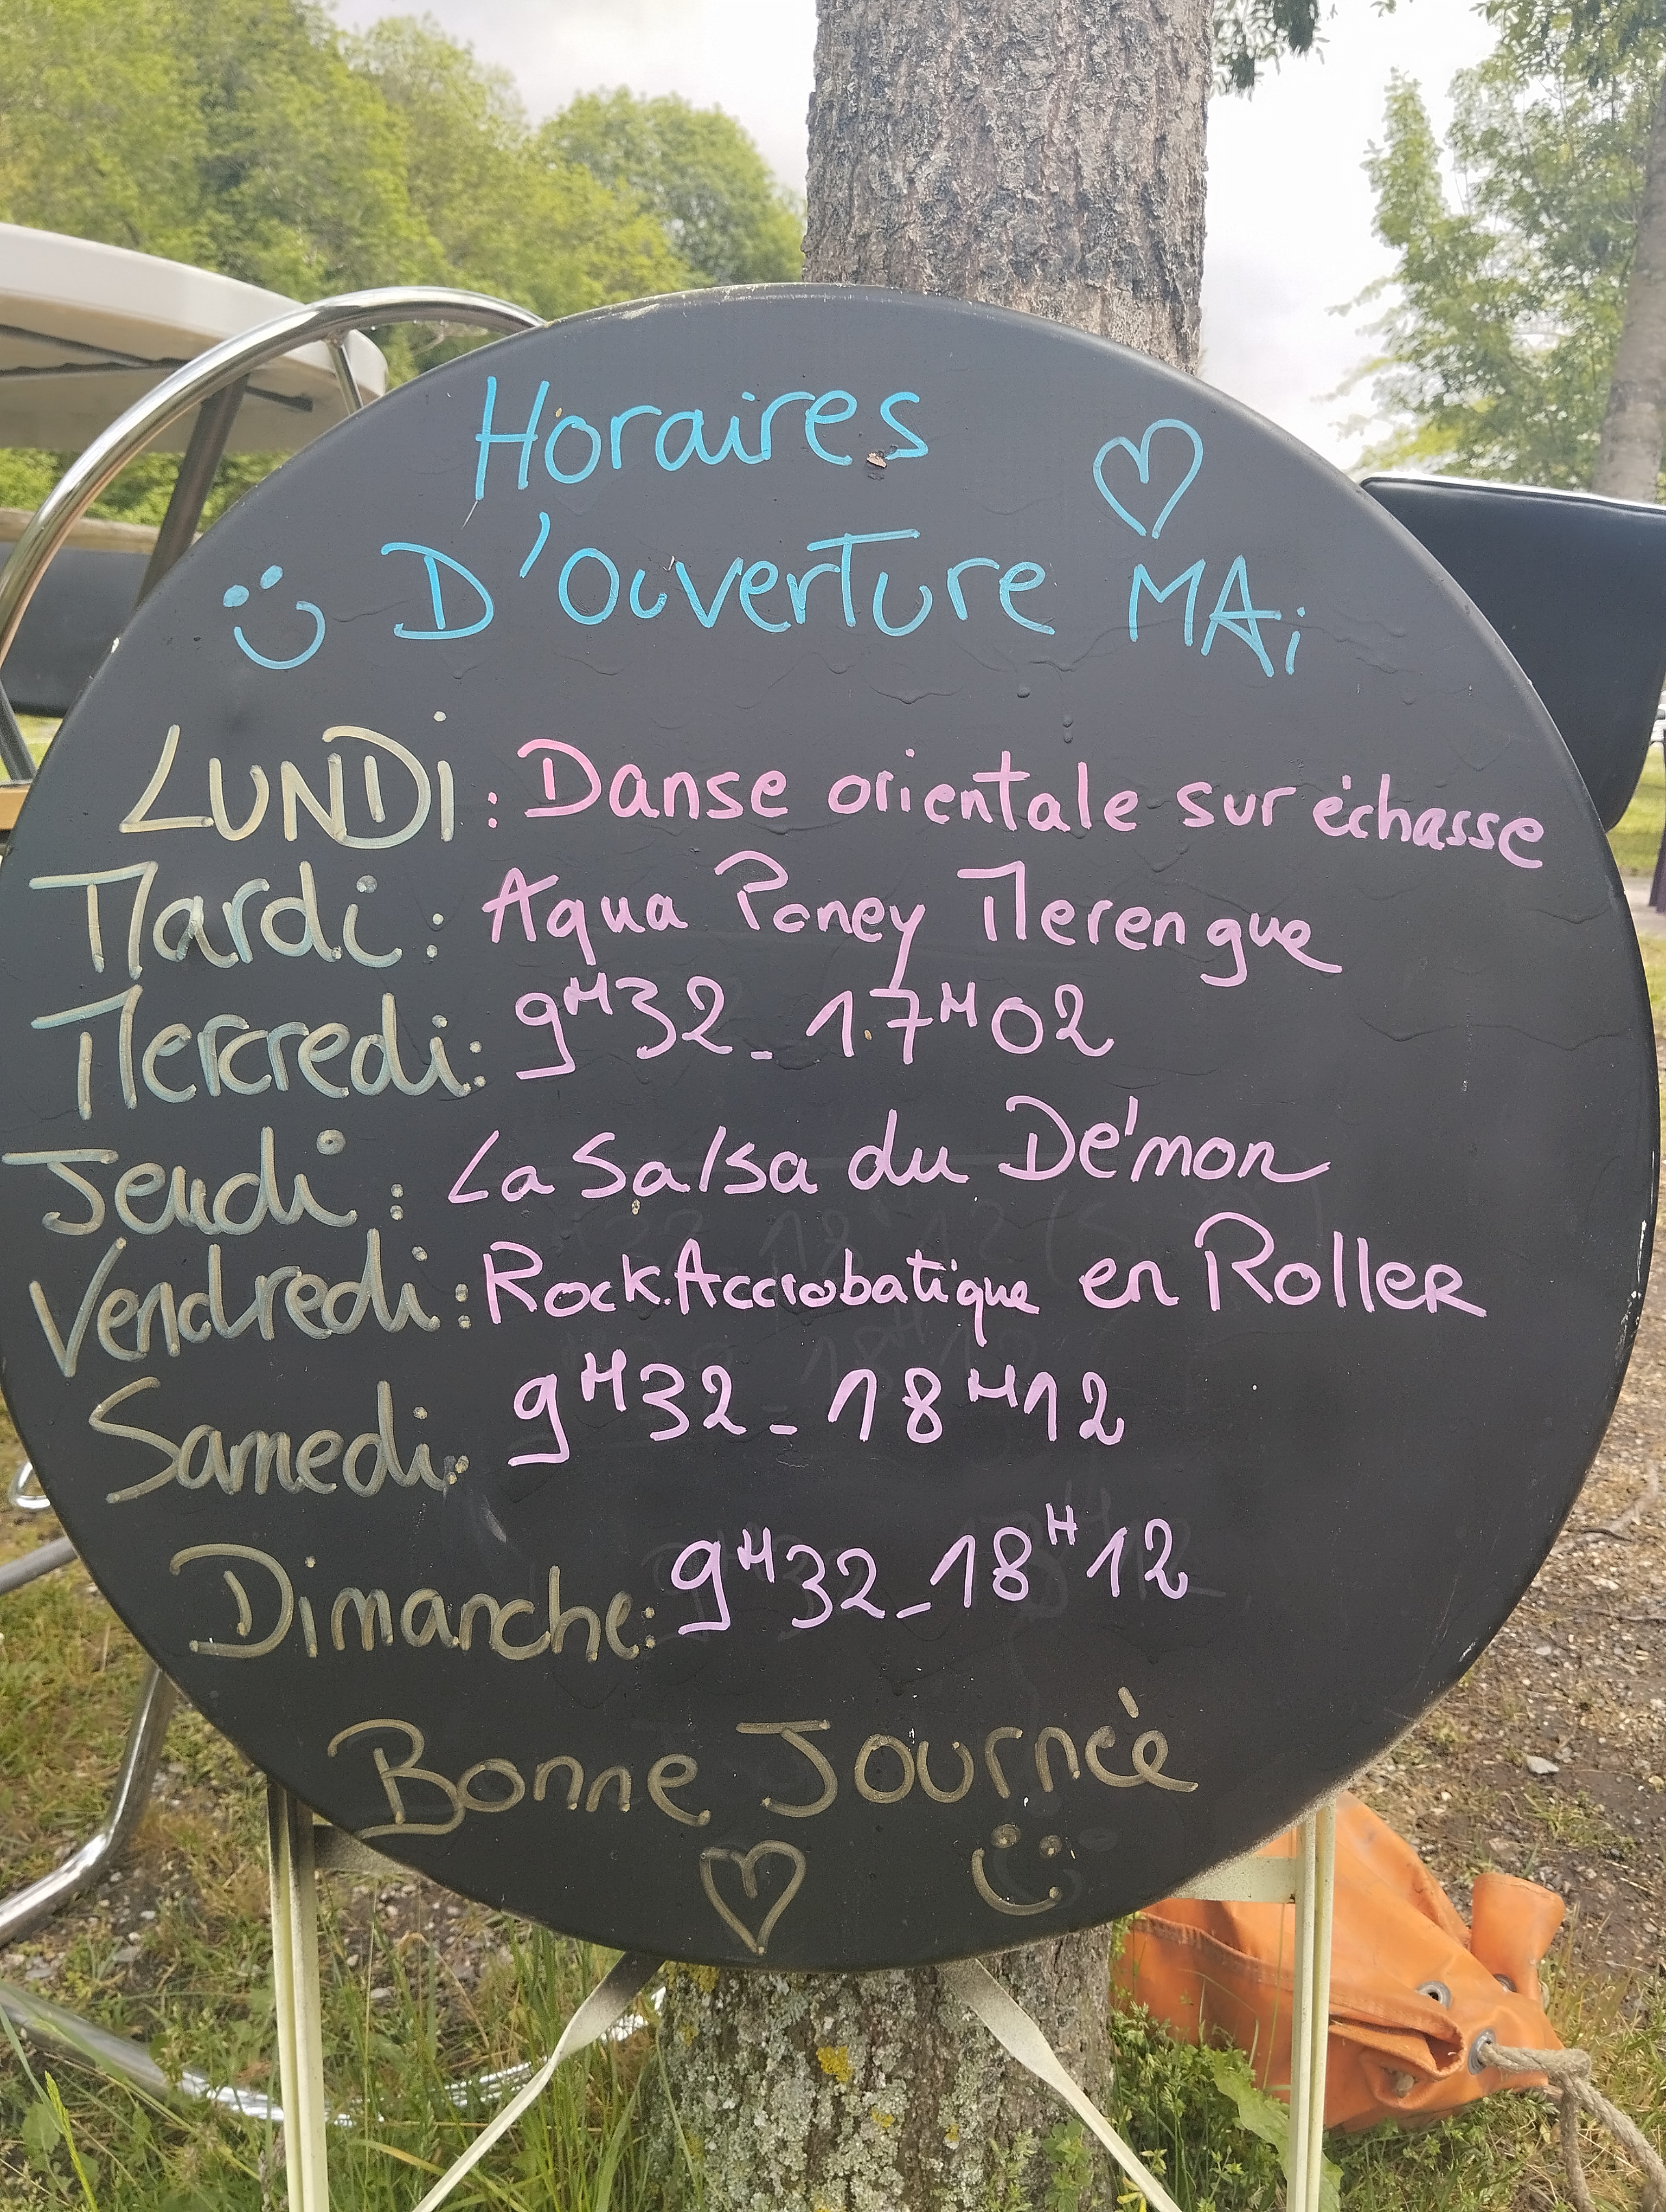 Horaires
D'Ouverture MAi
LUNDi : Danse orientale sur échasse
Mardi : Aqua Poney Merengue
Mercredi : 9H32 - 17H02
Jeudi : La Salsa du Démon
Vendredi : Rock Accrobatique en Roller
Samedi : 9H32 - 18H12
Dimanche : 9H32 - 18H12
Bonne Journée